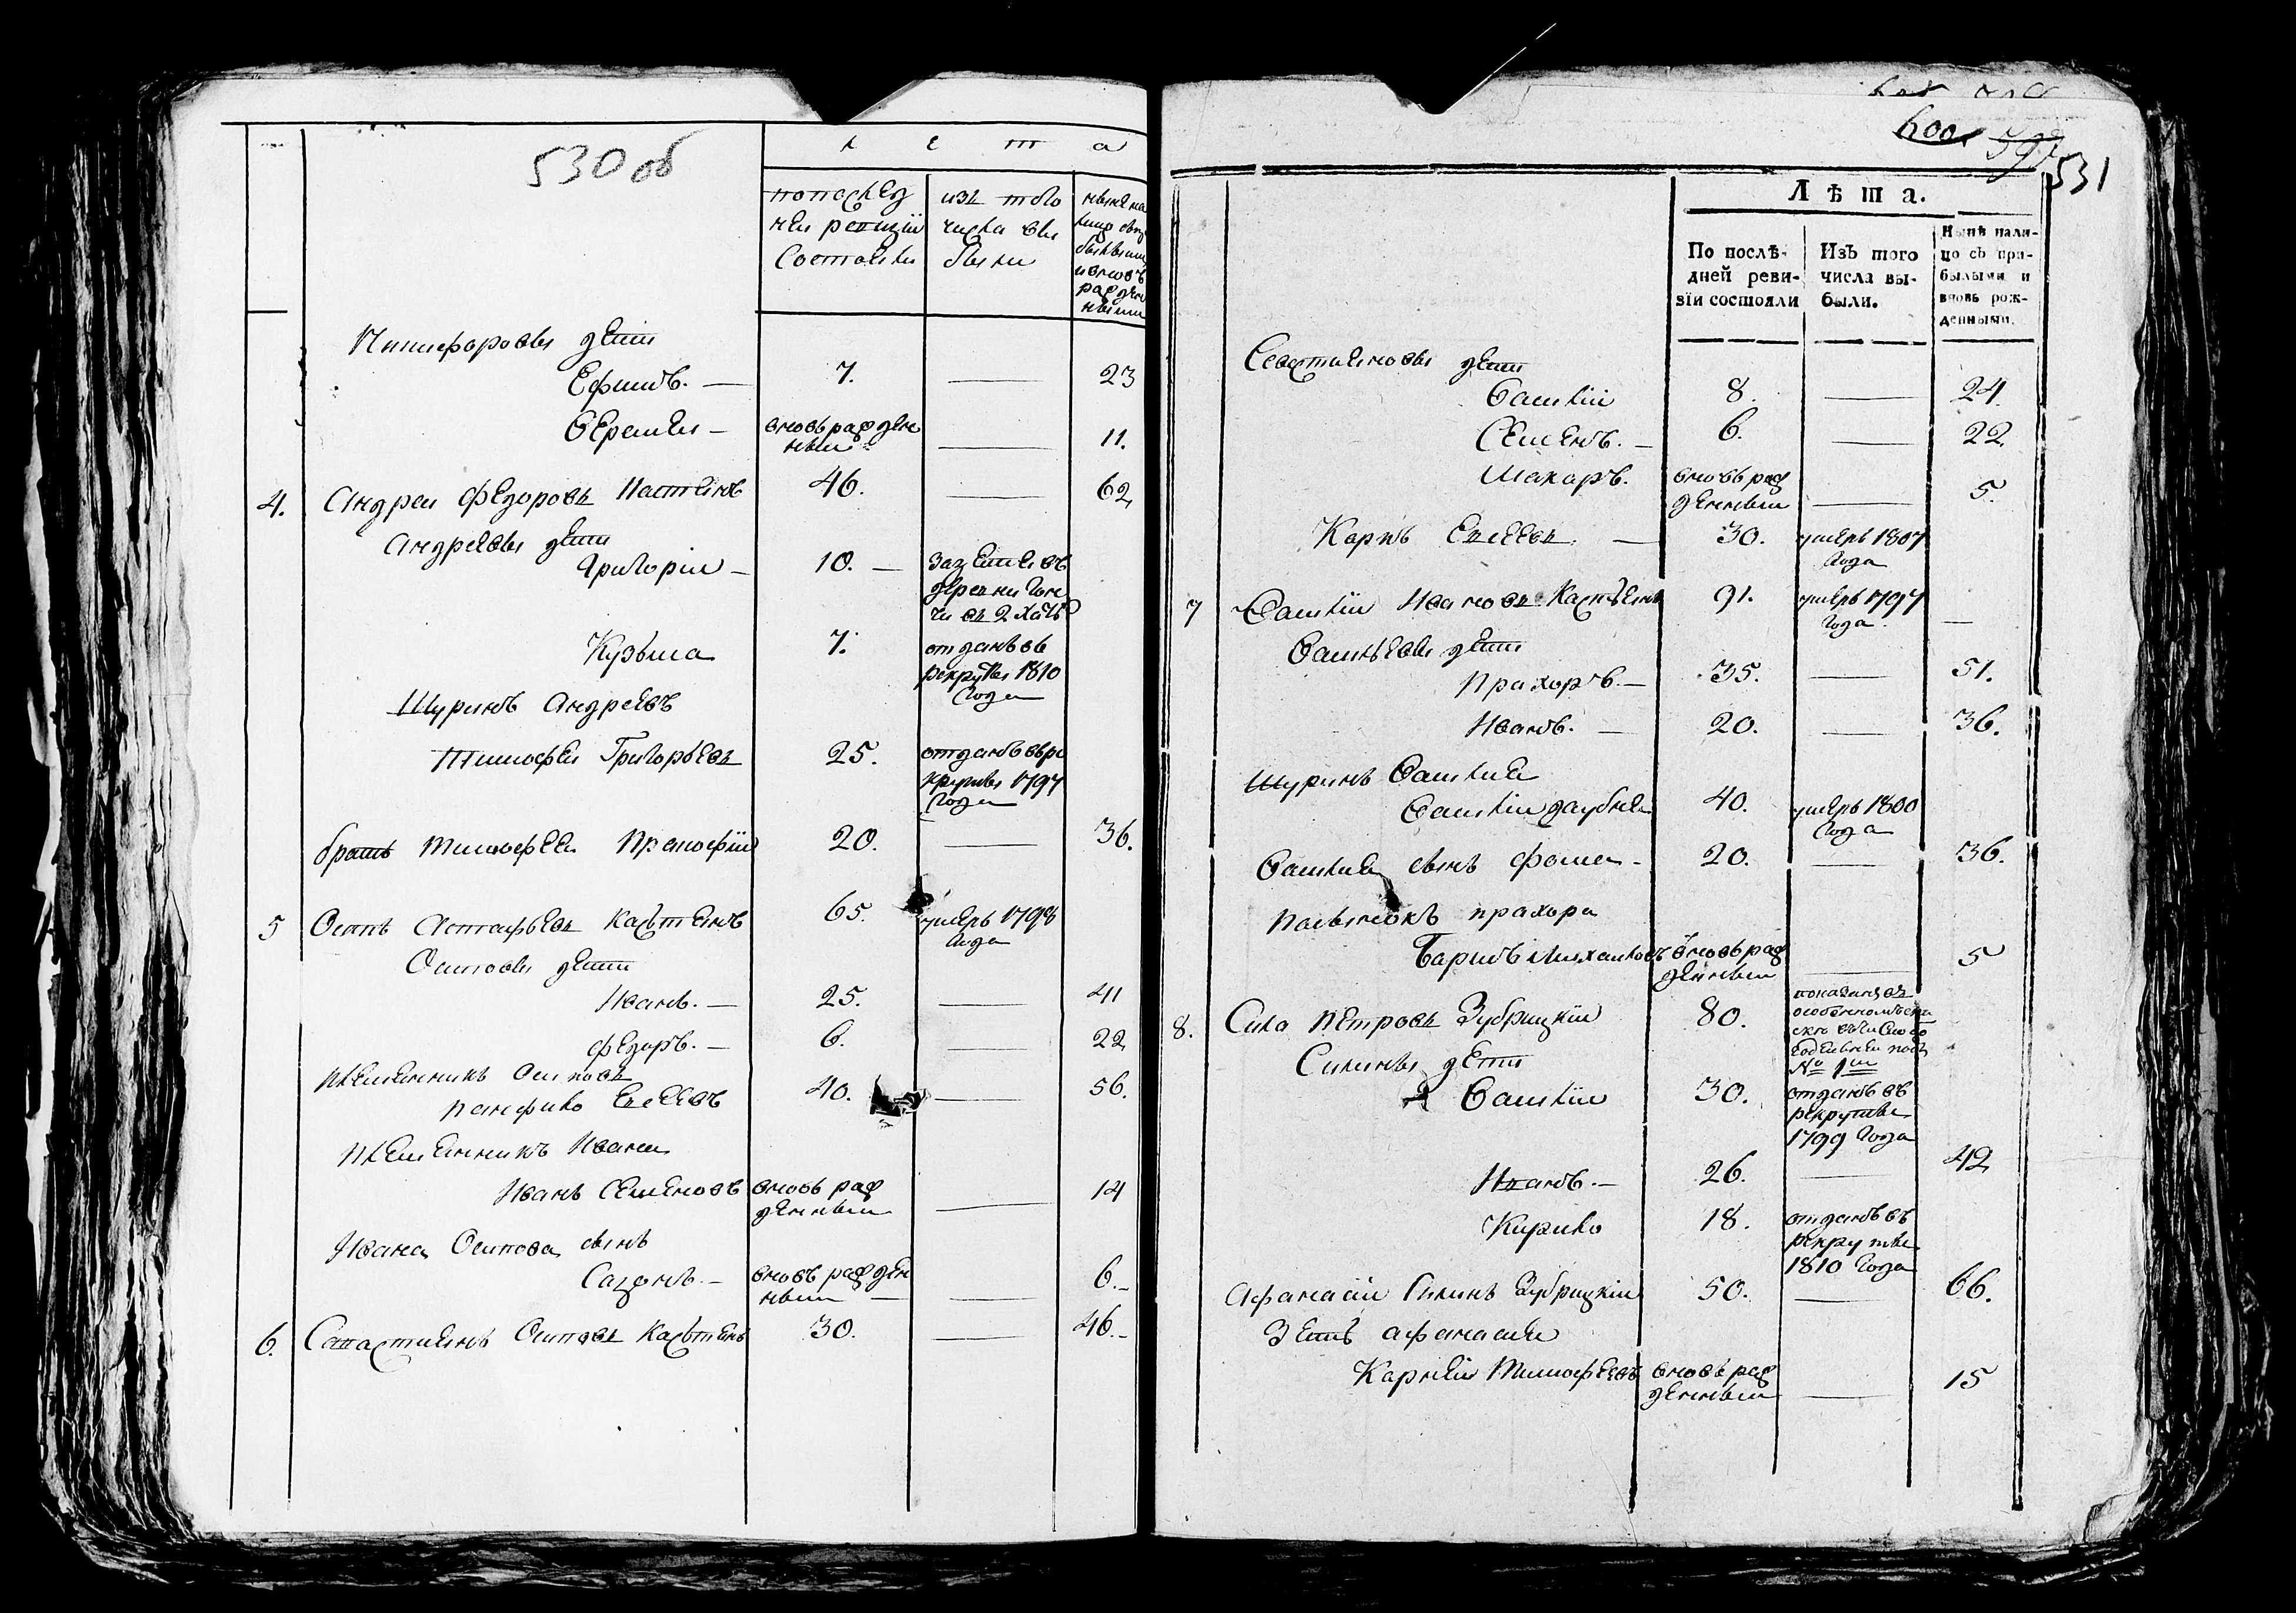 530 об
л е т а
по послед
ней ревизіи
состояли
изъ того
числа вы
были
Никифоровы дети
Ефимъ. — 7. — 23
Еремей — вновь рожден
ный — 11.
4. Андрей Федоровъ 46. — 62
Андреевы дети
Григорій — 10. —
Кузьма 7. отданъ въ
рекруты 1810
года
Шуринъ Андреевъ
Тимофей Григорьевъ 25. отданъ въ ре
круты 1797
года
братъ Тимофея 20. — 36.
5 Осипъ Астафьевъ 65. умеръ 1798
года
Осиповы дети
Иванъ. — 25. — 41
Федоръ. — 6. — 22
племянникъ Осиповъ
Елесевъ 40. — 56.
племянникъ Ивана
Иванъ Семеновъ вновь рож
денный — 14
Ивана Осипова сынъ
Сазонъ. — вновь рожден
ный — 6. —
6. Савастиянъ Осиповъ 30. — 46. —
600
531
Лѣта.
По послѣ-
дней реви-
зіи состояли
Изъ того
числа вы-
были.
Нынѣ нали-
цо съ при-
былыми и
вновь рож-
денными.
Севастияновы дети
Василій 8. — 24.
Семенъ. — 6. — 22.
Макаръ. вновь рож
денный — 5.
Карпъ Елесеевъ. — 30. умеръ 1807
года
7 Василій Ивановъ 91. умеръ 1797
года. —
Васильевы дети
Прохоръ. — 35. — 51.
Иванъ. — 20. — 36.
Шуринъ Василия
Василій 40. умеръ 1800
года
Василия сынъ Фома — 20. — 36.
Пасынокъ Прохора
Барисъ Михайловъ вновь рож
денный — 5
8. Сила Петровъ Зубрицкій 80.
Силины дети
Василій 30. отданъ въ
рекруты
1799 года
Иванъ. — 26. — 42
Кирило 18. отданъ въ
рекруты
1810 года
Афанасій Силинъ Зубрицкій 50. — 66.
Зять Афанасия
Карней Тимофеевъ вновь рож
денный — 15